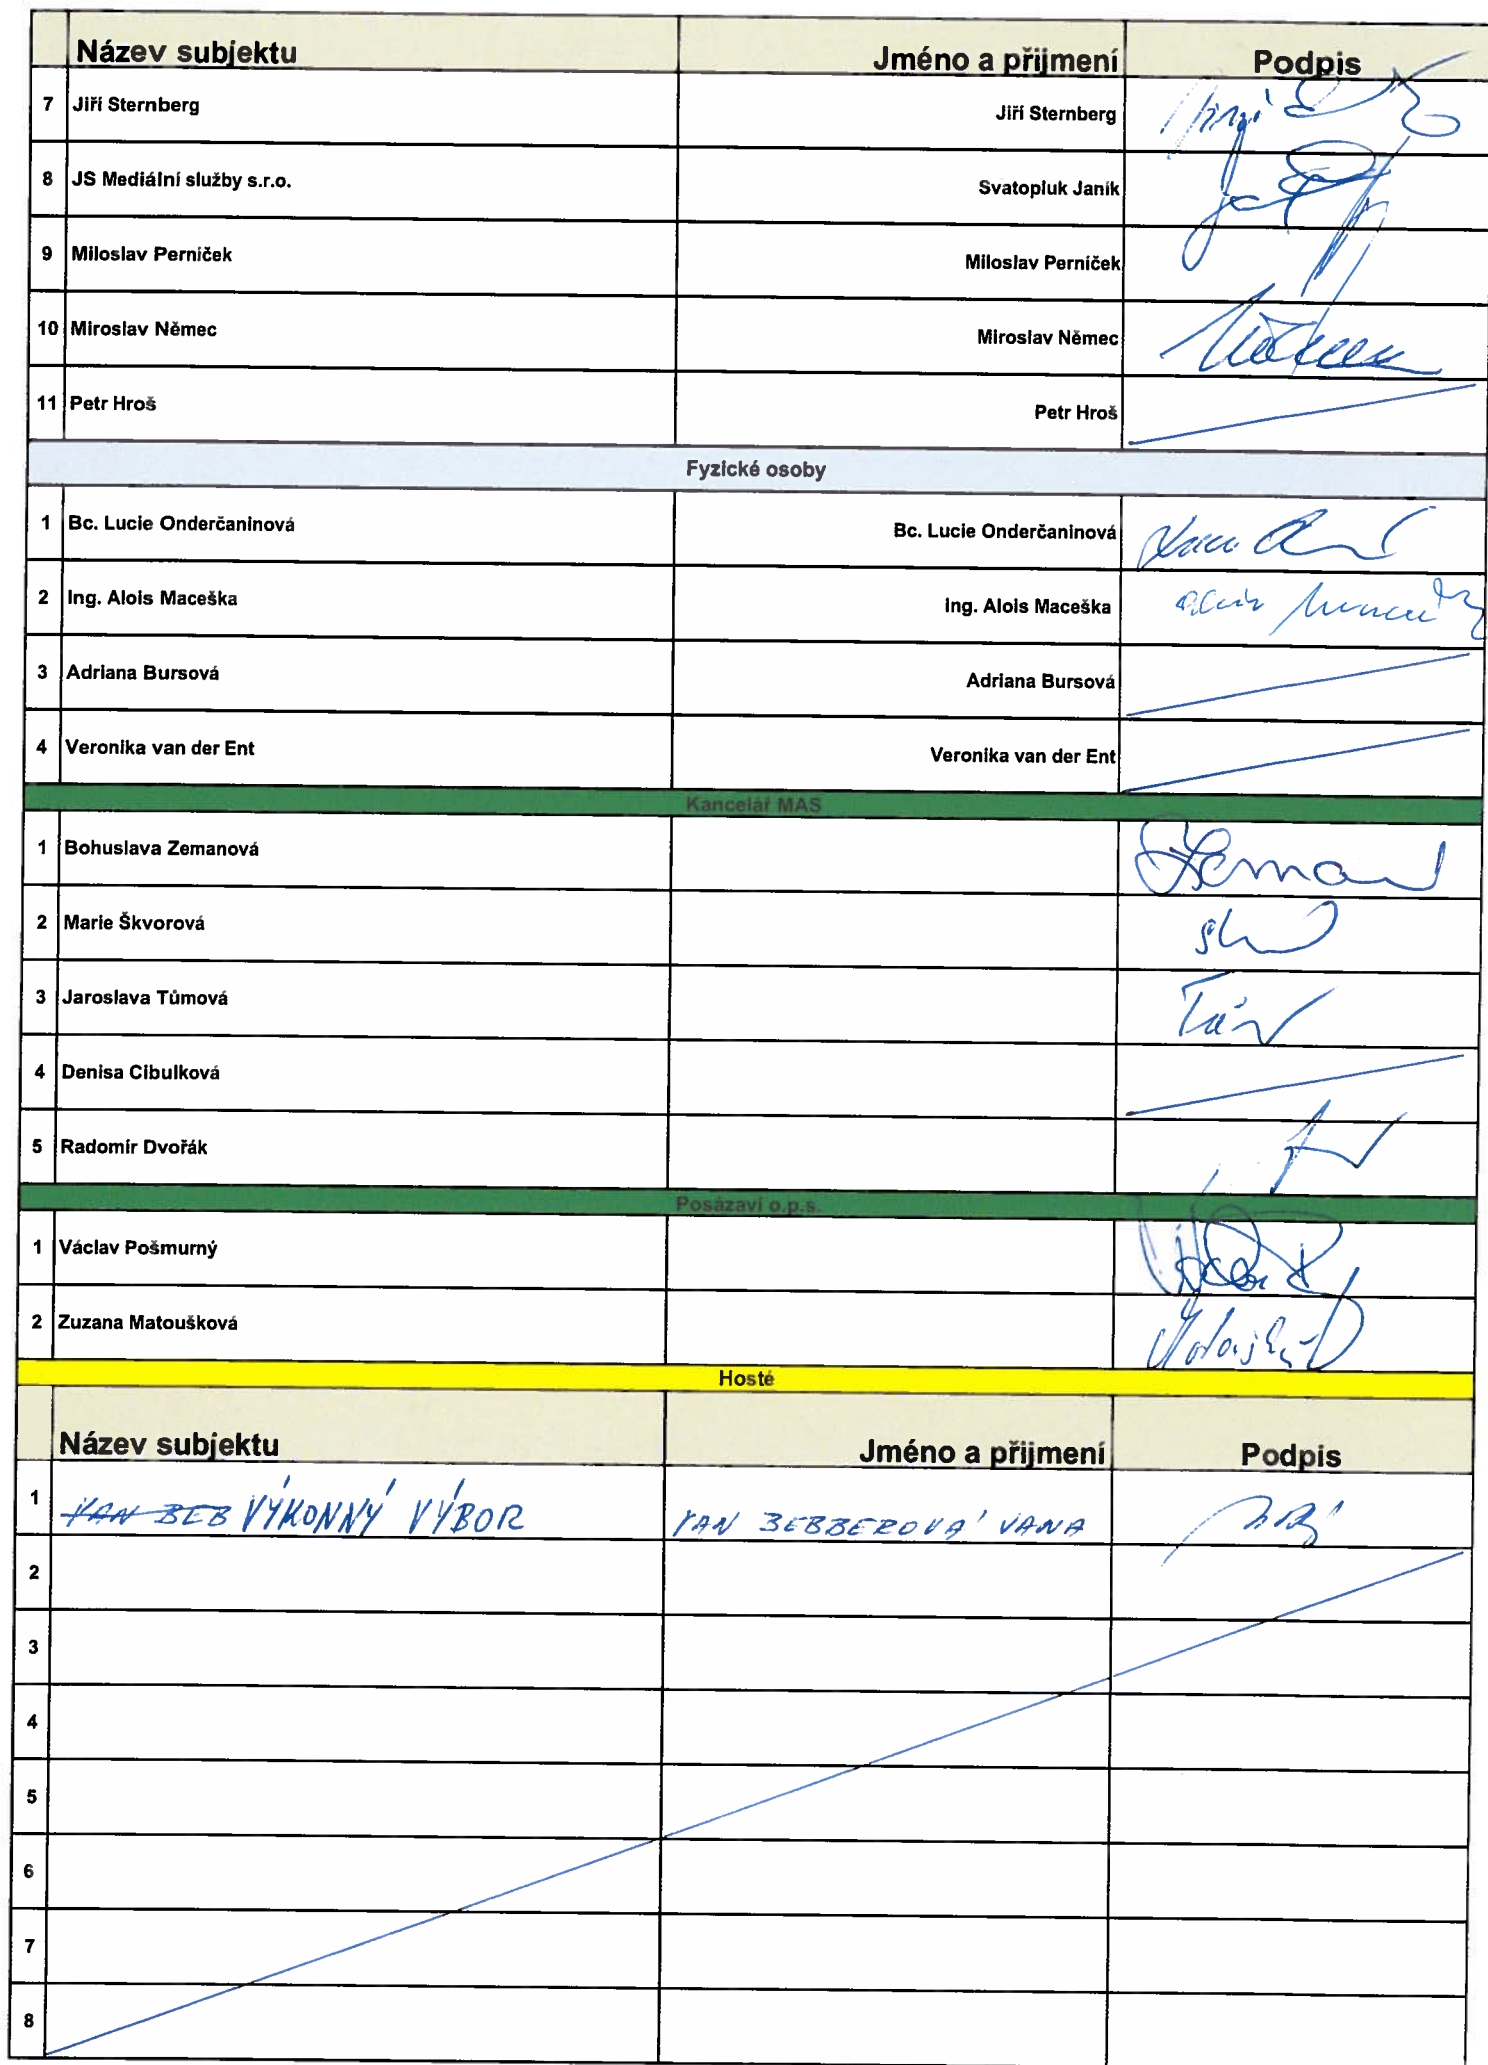 Název subjektu Jméno a přijmení Podpis
7 Jiří Sternberg Jiří Sternberg
8 JS Mediální služby s.r.o. Svatopluk Janík
9 Miloslav Perníček Miloslav Perníček
10 Miroslav Němec Miroslav Němec
11 Petr Hroš Petr Hroš
Fyzické osoby
1 Bc. Lucie Onderčaninová Bc. Lucie Onderčaninová
2 Ing. Alois Maceška Ing. Alois Maceška
3 Adriana Bursová Adriana Bursová
4 Veronika van der Ent Veronika van der Ent
Kancelář MAS
1 Bohuslava Zemanová
2 Marie Škvorová
3 Jaroslava Tůmová
4 Denisa Cibulková
5 Radomír Dvořák
Posázaví o.p.s.
1 Václav Pošmurný
2 Zuzana Matoušková
Hosté
Název subjektu Jméno a přijmení Podpis
1 VAN BEB VÝKONNÝ VÝBOR VAN BEBBEROVÁ VANA
2
3
4
5
6
7
8